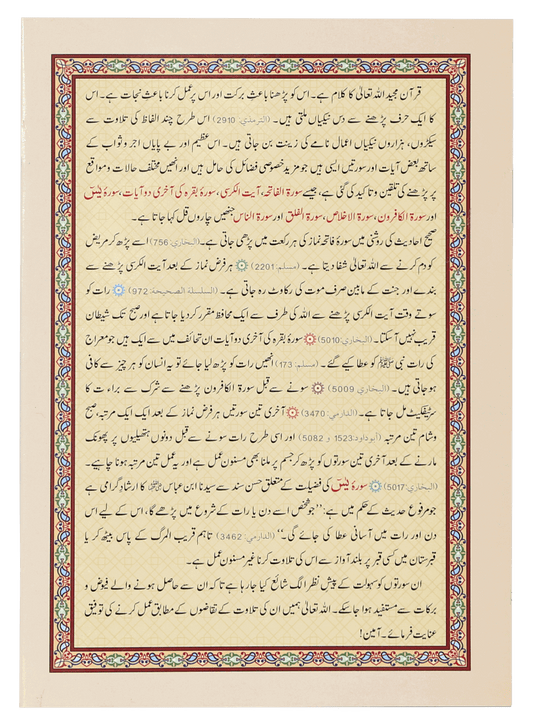 قرآن مجید اللہ تعالیٰ کا کلام ہے۔ اس کو پڑھنا باعثِ برکت اور اس پر عمل کرنا باعثِ نجات ہے۔ اس
کا ایک حرف پڑھنے سے دس نیکیاں ملتی ہیں۔ (الترمذی: 2910) اس طرح چند الفاظ کی تلاوت سے
سیکڑوں، ہزاروں نیکیاں اعمال نامے کی زینت بن جاتی ہیں۔ اس عظیم اور بے پایاں اجر و ثواب کے
ساتھ بعض آیات اور سورتیں ایسی ہیں جو مزید خصوصی فضائل کی حامل ہیں اور انھیں مختلف حالات و مواقع
پر پڑھنے کی تلقین و تاکید کی گئی ہے، جیسے سورۃ الفاتحہ، آیت الکرسی، سورۂ بقرہ کی آخری دو آیات، سورۂ یٰسٓ
اور سورۃ الکافرون، سورۃ الاخلاص، سورۃ الفلق اور سورۃ الناس جنھیں چاروں قل کہا جاتا ہے۔
صحیح احادیث کی روشنی میں سورۂ فاتحہ نماز کی ہر رکعت میں پڑھی جاتی ہے۔ (البخاري: 756) اسے پڑھ کر مریض
کو دم کرنے سے اللہ تعالیٰ شفا دیتا ہے۔ (مسلم: 2201) ہر فرض نماز کے بعد آیت الکرسی پڑھنے سے
بندے اور جنت کے مابین صرف موت کی رکاوٹ رہ جاتی ہے۔ (السلسلة الصحيحة: 972) رات کو
سوتے وقت آیت الکرسی پڑھنے سے اللہ کی طرف سے ایک محافظ مقرر کر دیا جاتا ہے اور صبح تک شیطان
قریب نہیں آسکتا۔ (البخاري: 5010) سورۂ بقرہ کی آخری دو آیات ان تحائف میں سے ایک ہیں جو معراج
کی رات نبی ﷺ کو عطا کیے گئے۔ (مسلم: 173) انھیں رات کو پڑھ لیا جائے تو یہ انسان کو ہر چیز سے کافی
ہو جاتی ہیں۔ (البخاري: 5009) سونے سے قبل سورۃ الکافرون پڑھنے سے شرک سے براءت کا
سرٹیفکیٹ مل جاتا ہے۔ (الدارمي: 3470) آخری تین سورتیں ہر فرض نماز کے بعد ایک ایک مرتبہ، صبح
و شام تین مرتبہ (أبوداود: 1523 و 5082) اور اسی طرح رات سونے سے قبل دونوں ہتھیلیوں پر پھونک
مارنے کے بعد آخری تین سورتوں کو پڑھ کر جسم پر ملنا بھی مسنون عمل ہے اور یہ عمل تین مرتبہ ہونا چاہیے۔
(البخاري: 5017) سورۂ یٰسٓ کی فضیلت کے متعلق حسن سند سے سیدنا ابن عباس کا ارشاد گرامی ہے
جو مرفوع حدیث کے حکم میں ہے: ’’جو شخص اسے دن یا رات کے شروع میں پڑھے گا، اس کے لیے اس
دن اور رات میں آسانی عطا کی جائے گی۔‘‘ (الدارمي: 3462) تاہم قریب المرگ کے پاس بیٹھ کر یا
قبرستان میں کسی قبر پر بلند آواز سے اس کی تلاوت کرنا غیر مسنون عمل ہے۔
ان سورتوں کو سہولت کے پیش نظر الگ شائع کیا جا رہا ہے تاکہ ان سے حاصل ہونے والے فیوض و
برکات سے مستفید ہوا جاسکے۔ اللہ تعالیٰ ہمیں ان کی تلاوت کے تقاضوں کے مطابق عمل کرنے کی توفیق
عنایت فرمائے۔ آمین!